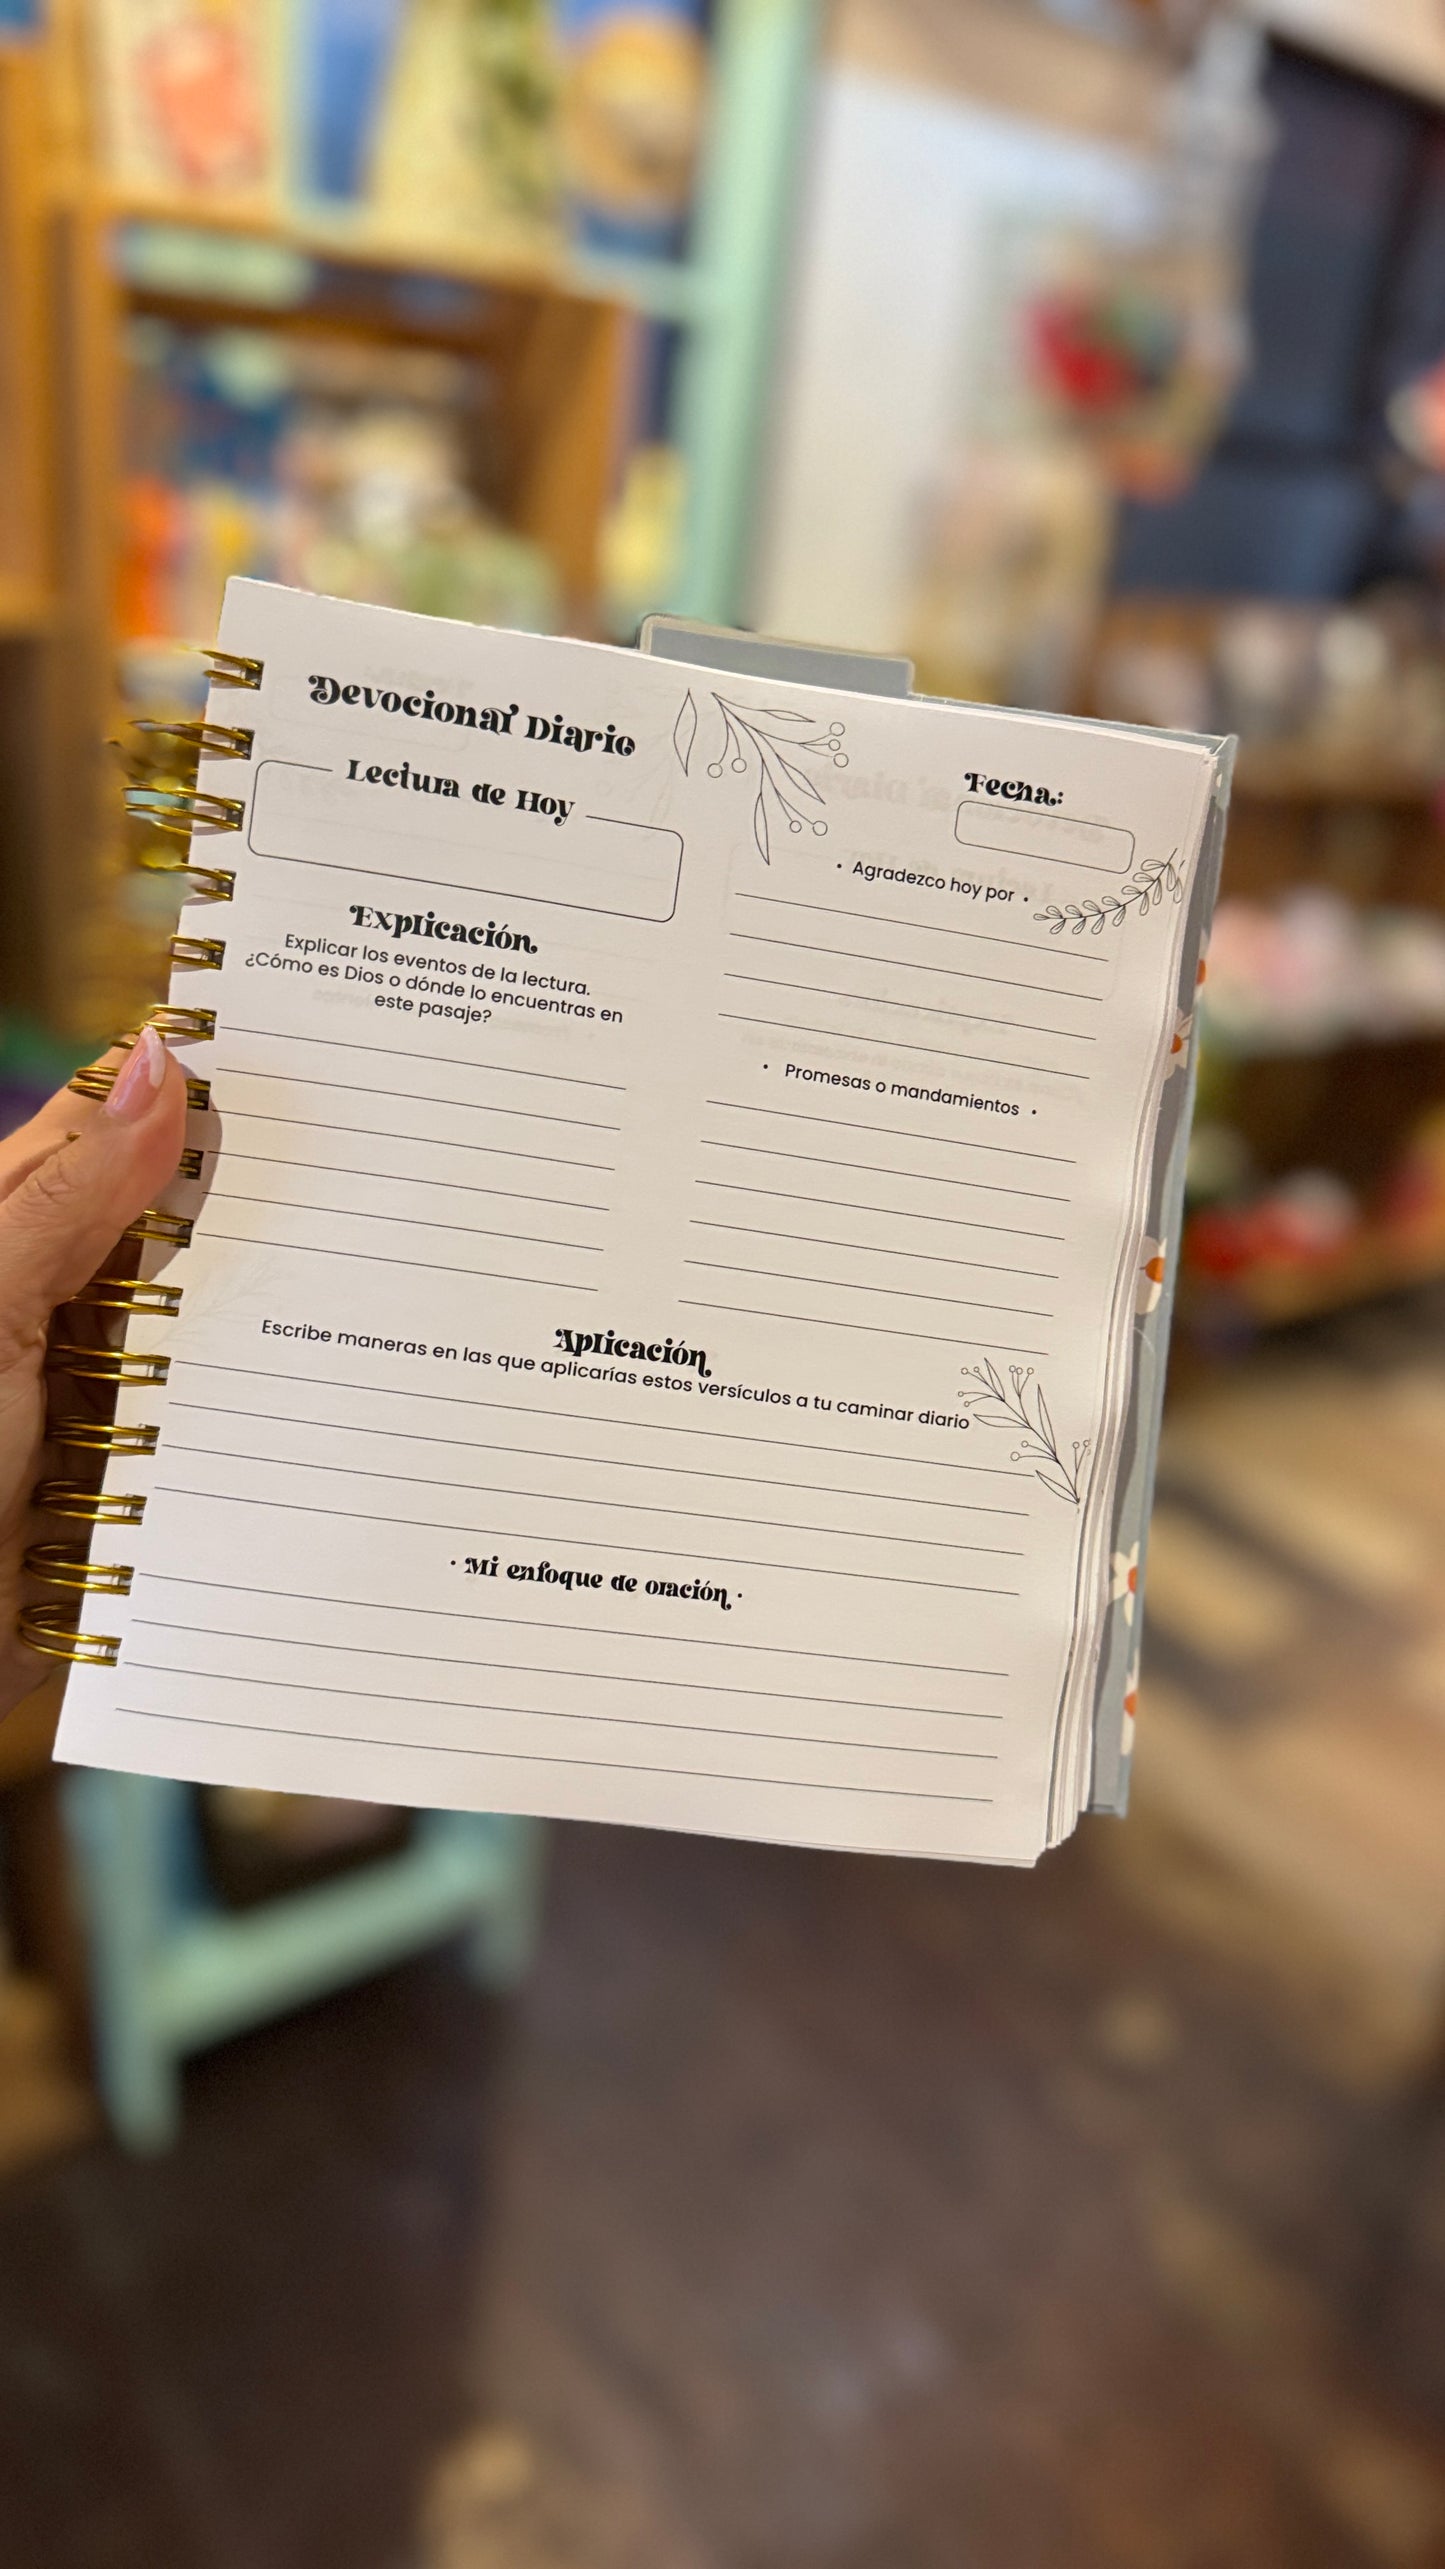 Devocional Diario
Lectura de Hoy
Fecha:
Explicación
Explicar los eventos de la lectura.
¿Cómo es Dios o dónde lo encuentras en
este pasaje?
• Agradezco hoy por •
• Promesas o mandamientos •
Aplicación
Escribe maneras en las que aplicarías estos versículos a tu caminar diario
· Mi enfoque de oración ·